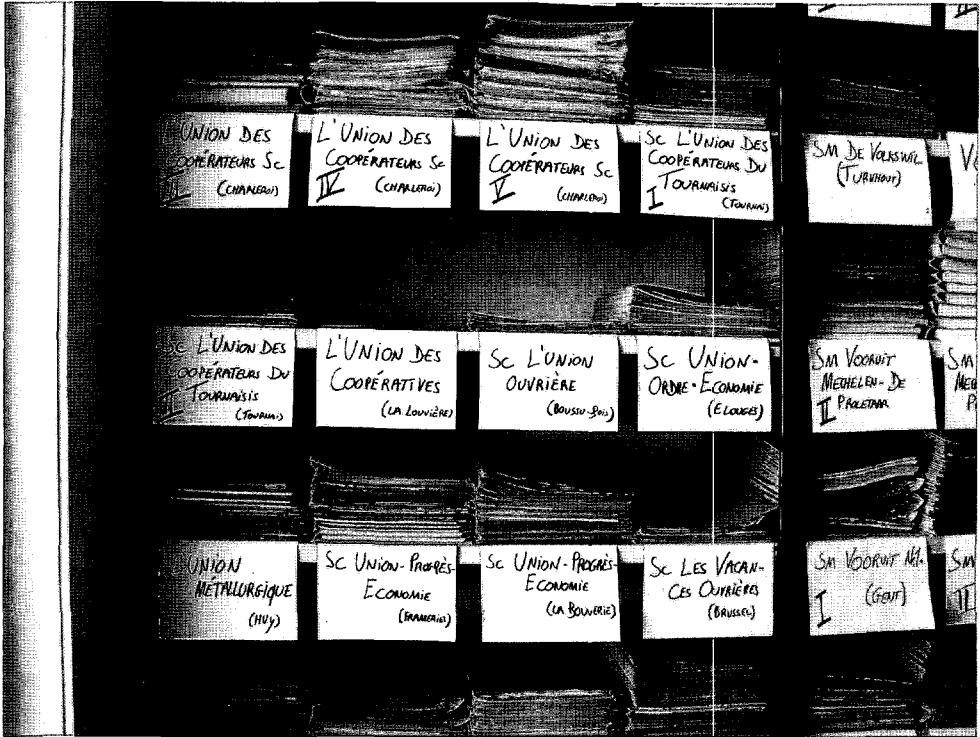 UNION DES
COOPÉRATEURS SC
III (CHARLEROI)
L'UNION DES
COOPÉRATEURS SC
IV (CHARLEROI)
L'UNION DES
COOPÉRATEURS SC
V (CHARLEROI)
SC L'UNION DES
COOPÉRATEURS DU
TOURNAISIS
I (TOURNAI)
SM DE VOLKSWIL
(TURNHOUT)
SC L'UNION DES
COOPÉRATEURS DU
TOURNAISIS
II (TOURNAI)
L'UNION DES
COOPÉRATIVES
(LA LOUVIÈRE)
SC L'UNION
OUVRIÈRE
(BOUSSU-BOIS)
SC UNION-
ORDRE-ÉCONOMIE
(ELOUGES)
SM VOORUIT
MECHELEN-DE
II PROLETAAR
SM
UNION
MÉTALLURGIQUE
(HUY)
SC UNION-PROGRÈS-
ECONOMIE
(FRAMERIES)
SC UNION-PROGRÈS-
ECONOMIE
(LA BOUVERIE)
SC LES VACAN-
CES OUVRIÈRES
(BRUSSEL)
SM VOORUIT N°1.
I (GENT)
SM
II